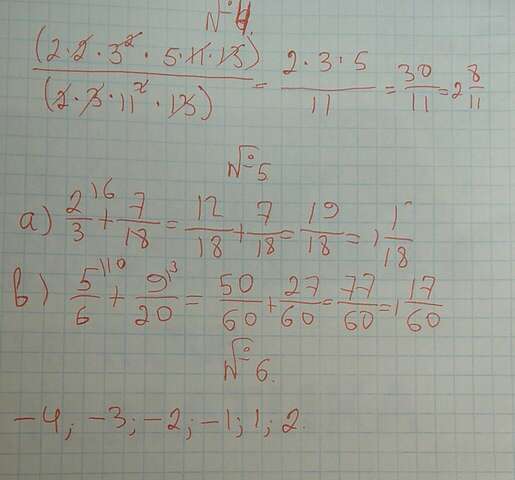 №4.
(2·2·3²·5·11·13) / (2·3·11²·13) = 2·3·5 / 11 = 30/11 = 2 8/11
№5
а) 2/3 |6 + 7/18 = 12/18 + 7/18 = 19/18 = 1 1/18
в) 5/6 |10 + 9/20 |3 = 50/60 + 27/60 = 77/60 = 1 17/60
№6.
-4; -3; -2; -1; 1; 2.